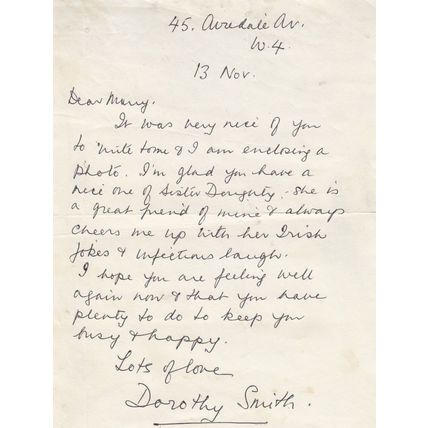 45. Airedale Av.
W.4.
13 Nov.
Dear Mary.
It was very nice of you
to write to me & I am enclosing a
photo. I'm glad you have a
nice one of Sister Doughty - she is
a great friend of mine & always
cheers me up with her Irish
jokes & infectious laugh.
I hope you are feeling well
again now & that you have
plenty to do to keep you
busy & happy.
Lots of love
Dorothy Smith.